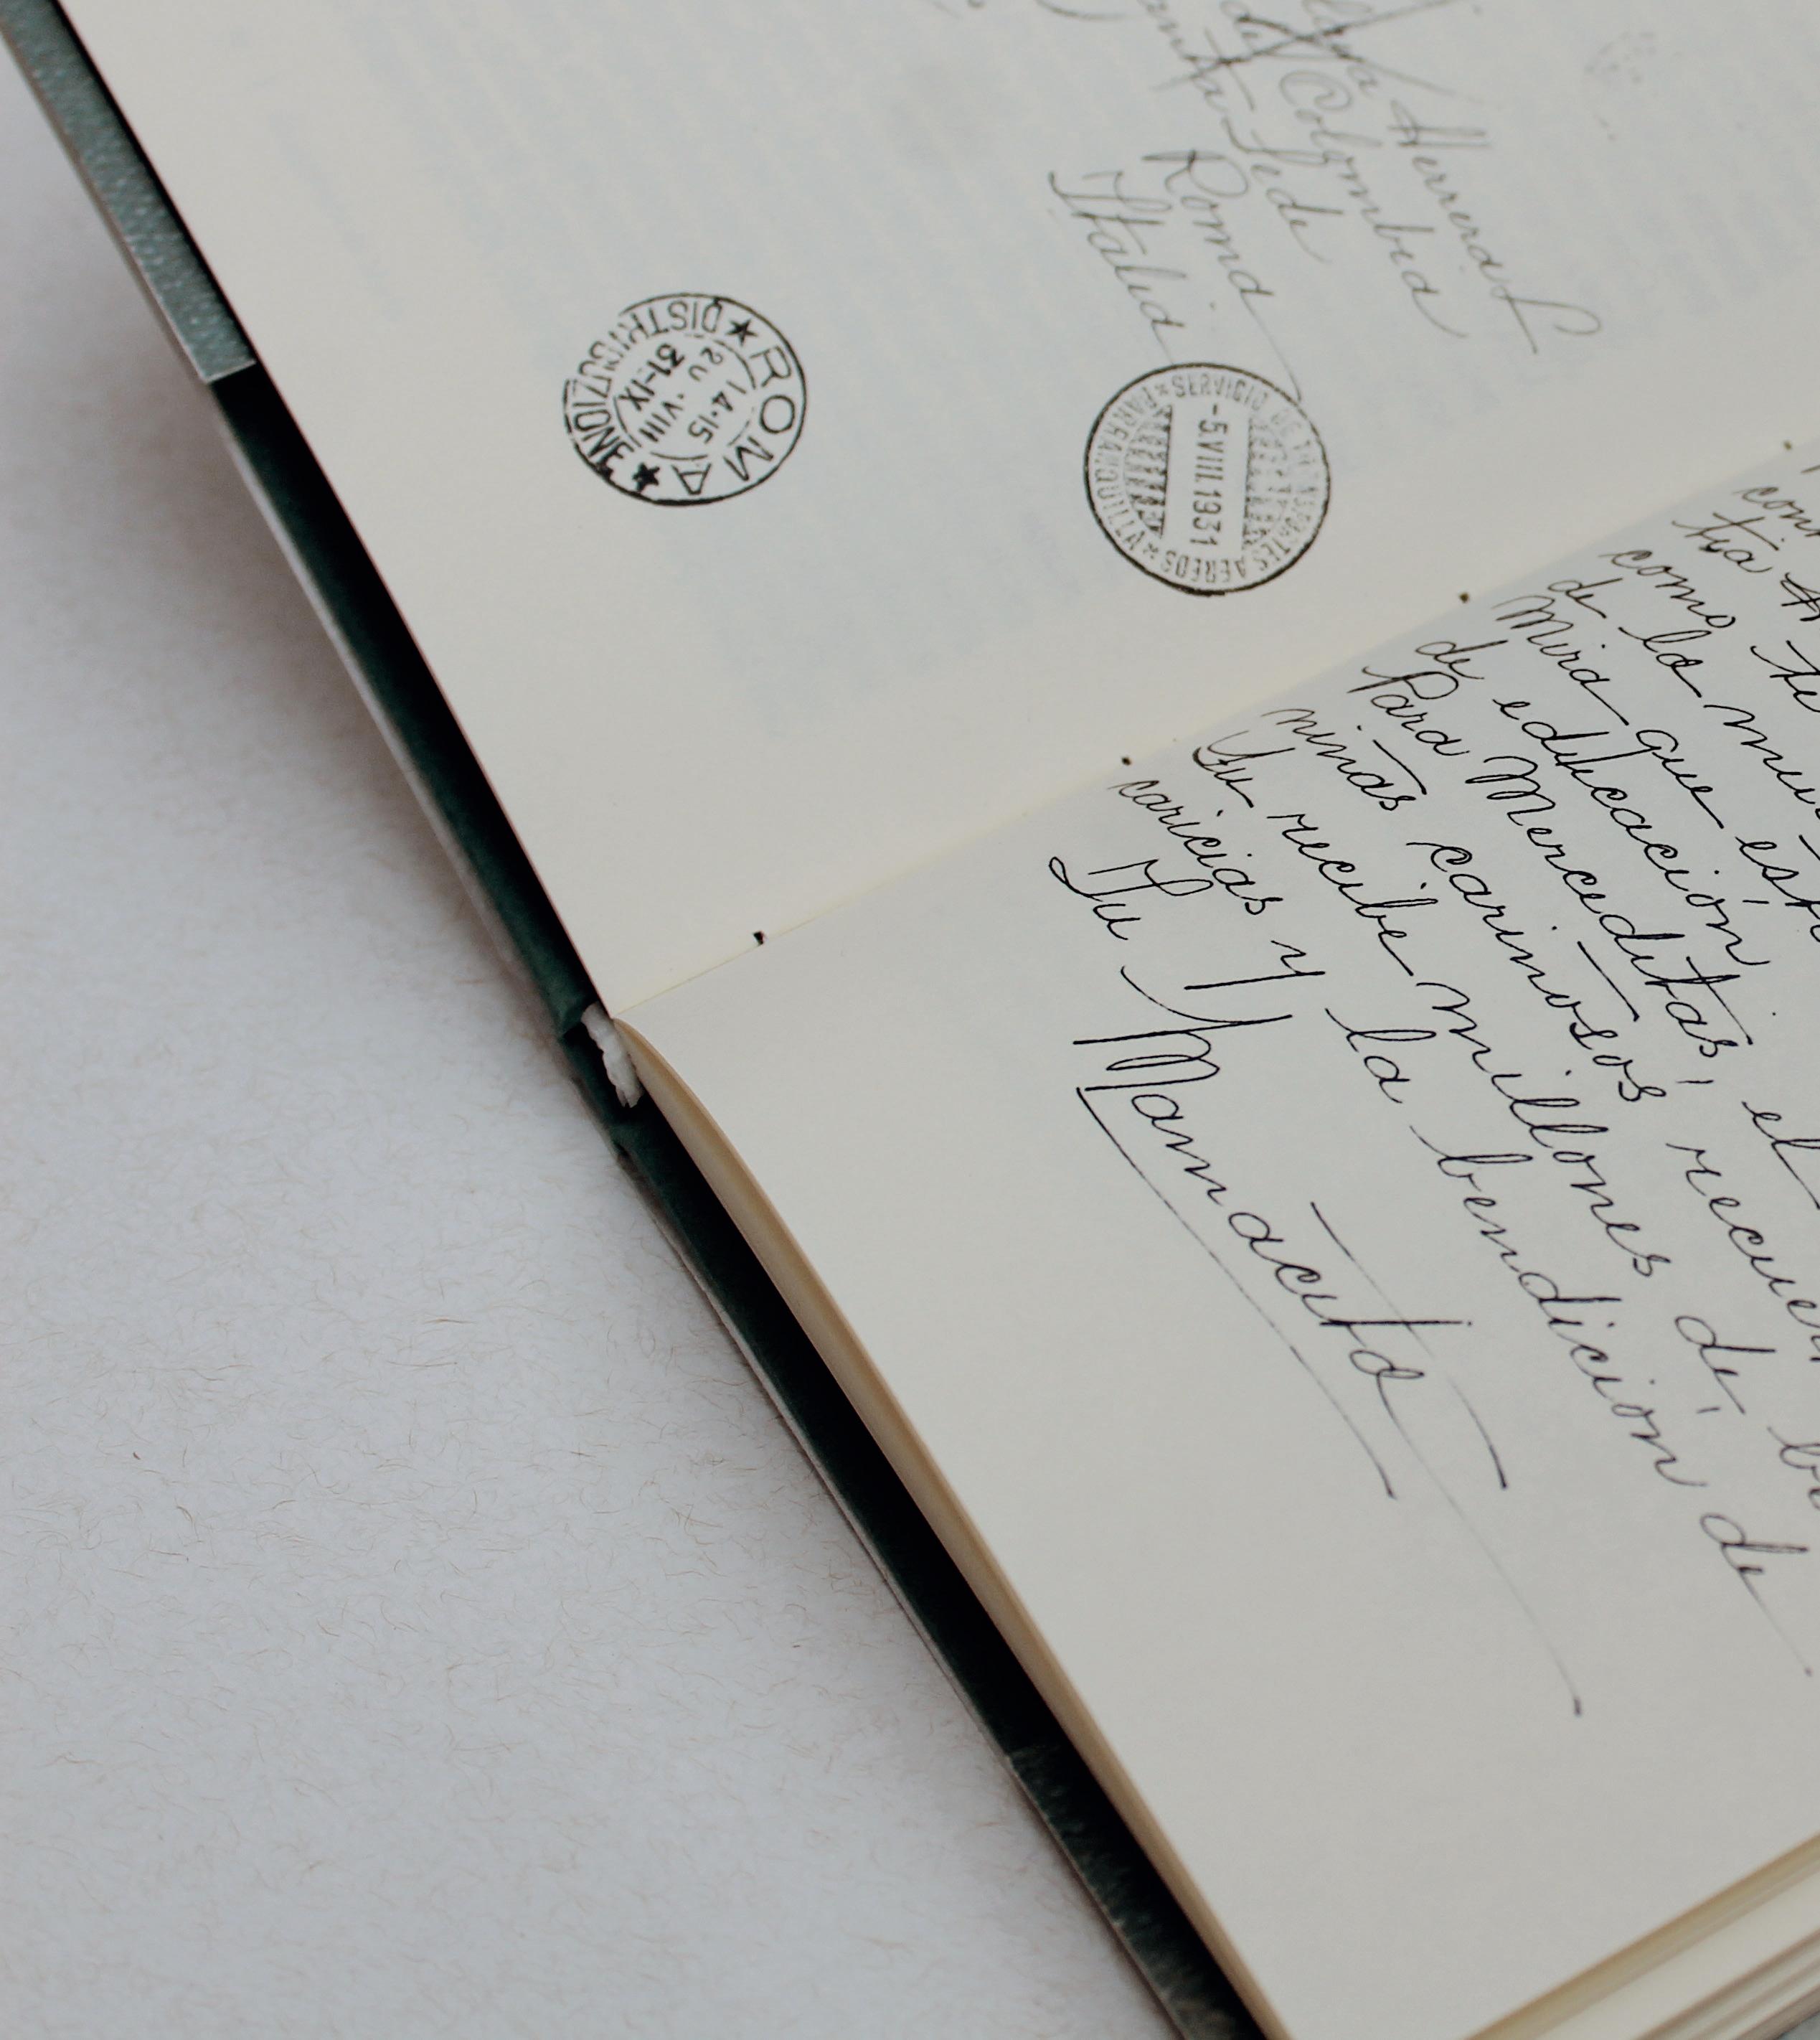 Herrera
de Colombia
Santa Sede
Roma
Italia
ROMA
DISTRIBUZIONE
14·15
20 ·VIII
31-IX
SERVICIO DE TRANSPORTES AEREOS
BARRANQUILLA
-5.VIII.1931
tia
como te
de la
Mira que
de educación
Para Merceditas, el
niñas cariñosos
Tu recibe millones de
caricias y la bendicion de
Tu Mamacita